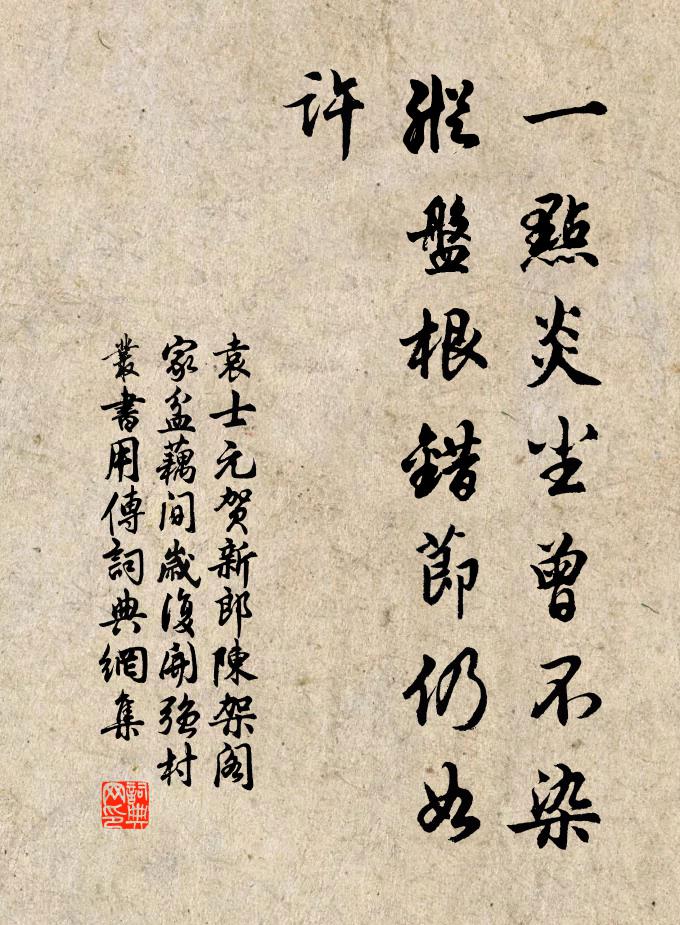 一點炎尘曾不染
縱盤根錯節仍如
許
袁士元賀新郎陳架阁
家盆藕间歲復開强村
叢書用傳詞典網集
詞典网印